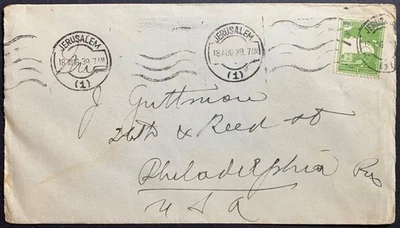 JERUSALEM
18 AUG 39. 7 AM
(1)
JERUSALEM
18 AUG 39. 7 AM
(1)
JERUS
(1)
J Guttman
26th & Reed st
Philadelphia Pa
U S A